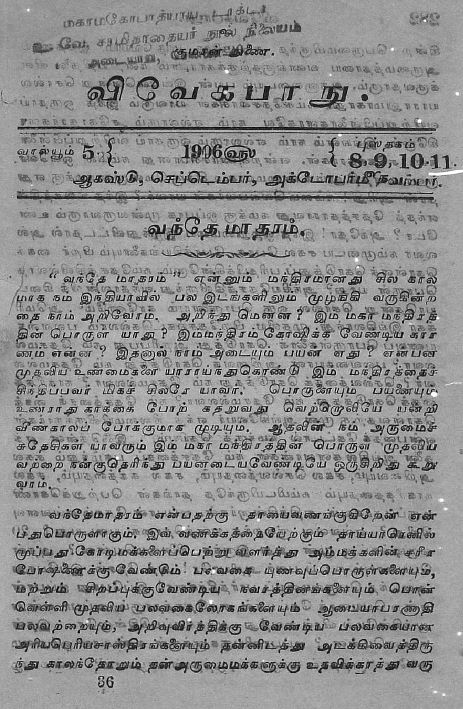 மகாமகோபாத்யாய டாக்டர்
உ. வே. சாமிநாதையர் நூல் நிலையம்
அடையாறு
விவேகபாநு.
வால்யூம் 5 } 1906௵ { புஸ்தகம் 8-9-10-11.
ஆகஸ்டு, செப்டெம்பர், அக்டோபர்மீ நவம்பர்.
வந்தேமாதரம்.
“வந்தே மாதரம்” என்னும் மந்திரமானது சில கால
மாக நம் இந்தியாவில் பல இடங்களிலும் முழங்கி வருகின்ற
தை நாம் அறிவோம். அறிந்து மென்ன? இம்மகா மந்திரத்
தின் பொருள் யாது? இம்மந்திரம் கோஷிக்க வேண்டிய கார
ணம் என்ன? இதனால் நாம் அடையும் பயன் எது? என்பன
முதலிய உண்மைகள் பராயாந்துகொண்டு இம் மந்திரத்தைச்
சிந்திப்பவர் மிகச் சிலரே யாவர். பொருளையும் பயனையும்
உணராது காக்கை போற் கதறுவது வெற்றொலியே யன்றி
வீணாகவே போக்குமாக முடியும். ஆகலின் நம் அருமைச்
சுதேசிகள் யாவரும் இம் மகா மந்திரத்தின் பொருள் முதலிய
வற்றை நன்குதெரிந்து பயனடையவேண்டியே ஒருசிறிது கூறு
வாம்.
வந்தேமாதரம் என்பதற்கு தாயைவணங்குகிறேன் என்
பதுபொருளாகும். இவ் வணக்கத்தையேற்கும் தாய்யாரெனில்
முப்பது கோடிமக்களைப்பெற்று வளர்த்து அம்மக்களின் சரிச
போஷணைக்கு வேண்டும் பலவகை யுணவுப்பொருள்களையும்,
மற்றும் சிறப்புக்குவேண்டிய நவரத்தினங்களையும், பொன்
வெள்ளி முதலிய பலவகைலோகங்களையும் ஆடையாபரணாதி
பலவற்றையும், அறிவுவிர்த்திக்கு வேண்டிய பலவகையான
அரியபெரியசாஸ்திரங்களையும் தன்னிடத்து அடக்கிவைத்திரு
ந்து காலந்தோறும் தன்அருமைமக்களுக்கு உதவிக்காத்து வரு
36